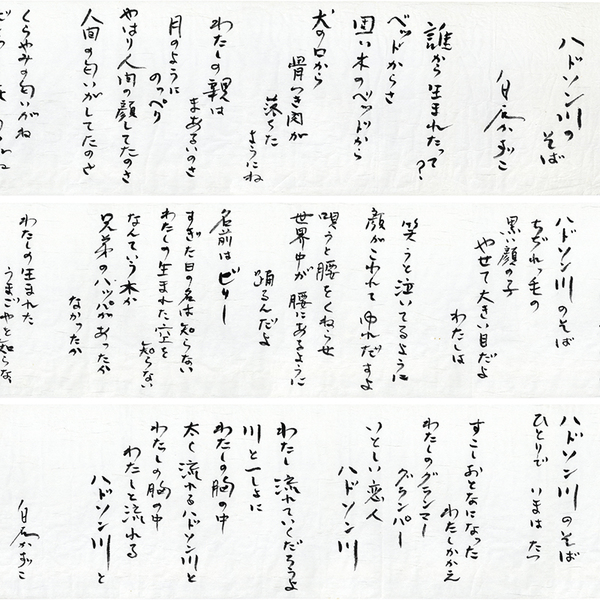 ハドソン川の
そば
白石かずこ
誰から生まれたって?
ベッドからさ
固い木のベッドから
犬の口から
骨つき肉が
落ちた
ようにね
わたしの親は
まあるいのさ
月のように
のっぺり
やはり人間の顔してたのさ
人間の匂いがしてたのさ
くらやみの匂いがね
ハドソン川のそば
ちぢれっ毛の
黒い顔の子
やせて大きい目だよ
わたしは
笑うと泣いてるように
顔がこわれて ゆれだすよ
唄うと腰をくねらせ
世界中が 腰にあるように
踊るんだよ
名前はビリー
すぎた日の名は知らない
わたしの生まれた空を
知らない
なんていう木か
兄弟のハッパがあったか
なかったか
わたしの生まれた
うまごやを知らな
ハドソン川のそば
ひとりで いまは たつ
すこしおとなになった
わたしかかえ
わたしのグランマー
グランパー
いとしい恋人
ハドソン川
わたし流れていくだろうよ
川と一しょに
わたしの胸の中
太く流れるハドソン川と
わたしの胸の中
わたしと流れる
ハドソン川と
白石かずこ